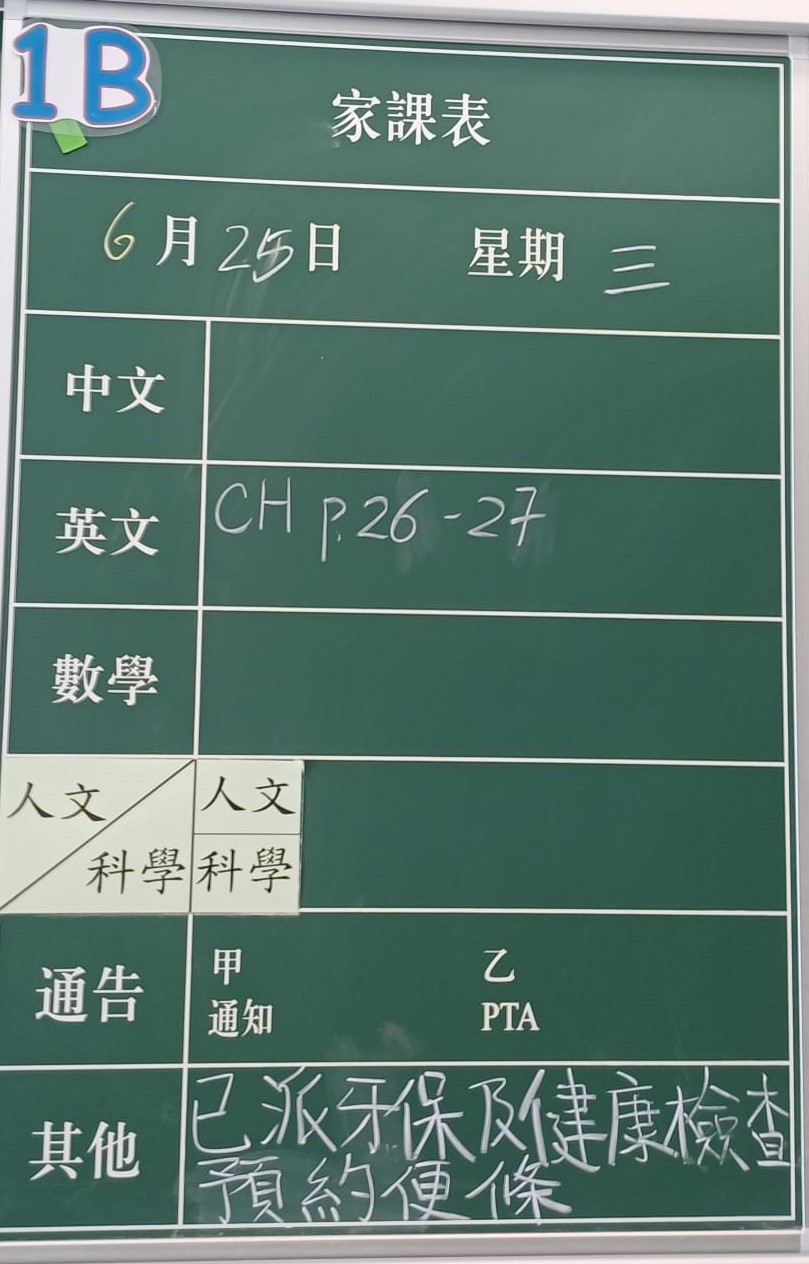 1B
家課表
6月25日 星期三
中文
英文 CH p.26-27
數學
人文 人文
科學 科學
通告
甲 乙
通知 PTA
其他
已派牙保及健康檢查
預約便條